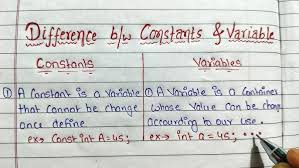 Difference b/w Constants & Variable
Constants
Variables
① A Constant is a variable
that cannot be change
once define
ex→ Const int A=45;
① A Variable is a Container
whose value can be change
according to our use.
ex→ int a=45;